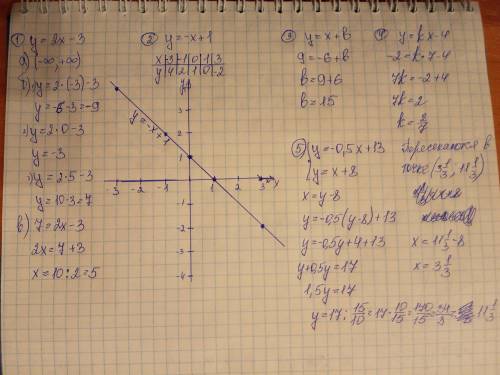 ① y=2x-3
a) (-∞;+∞)
б) y=2·(-3)-3
y=-6-3=-9
y=2·0-3
y=-3
y=2·5-3
y=10-3=7
в) 7=2x-3
2x=7+3
x=10:2=5
② y=-x+1
x -3 -1 0 1 3
y 4 2 1 0 -2
y
y=-x+1
3
2
1
-3 -2 -1 1 2 3 x
-1
-2
-3
-4
③ y=x+b
9=-6+b
b=9+6
b=15
④ y=kx-4
-2=k·7-4
7k=-2+4
7k=2
k=2/7
⑤ {y=-0,5x+13
{y=x+8
x=y-8
y=-0,5(y-8)+13
y=-0,5y+4+13
y+0,5y=17
1,5y=17
y=17:15/10=17·10/15=170/15=34/3=11 1/3
Пересекаются в
точке (3 1/3; 11 1/3)
x=11 1/3-8
x=3 1/3